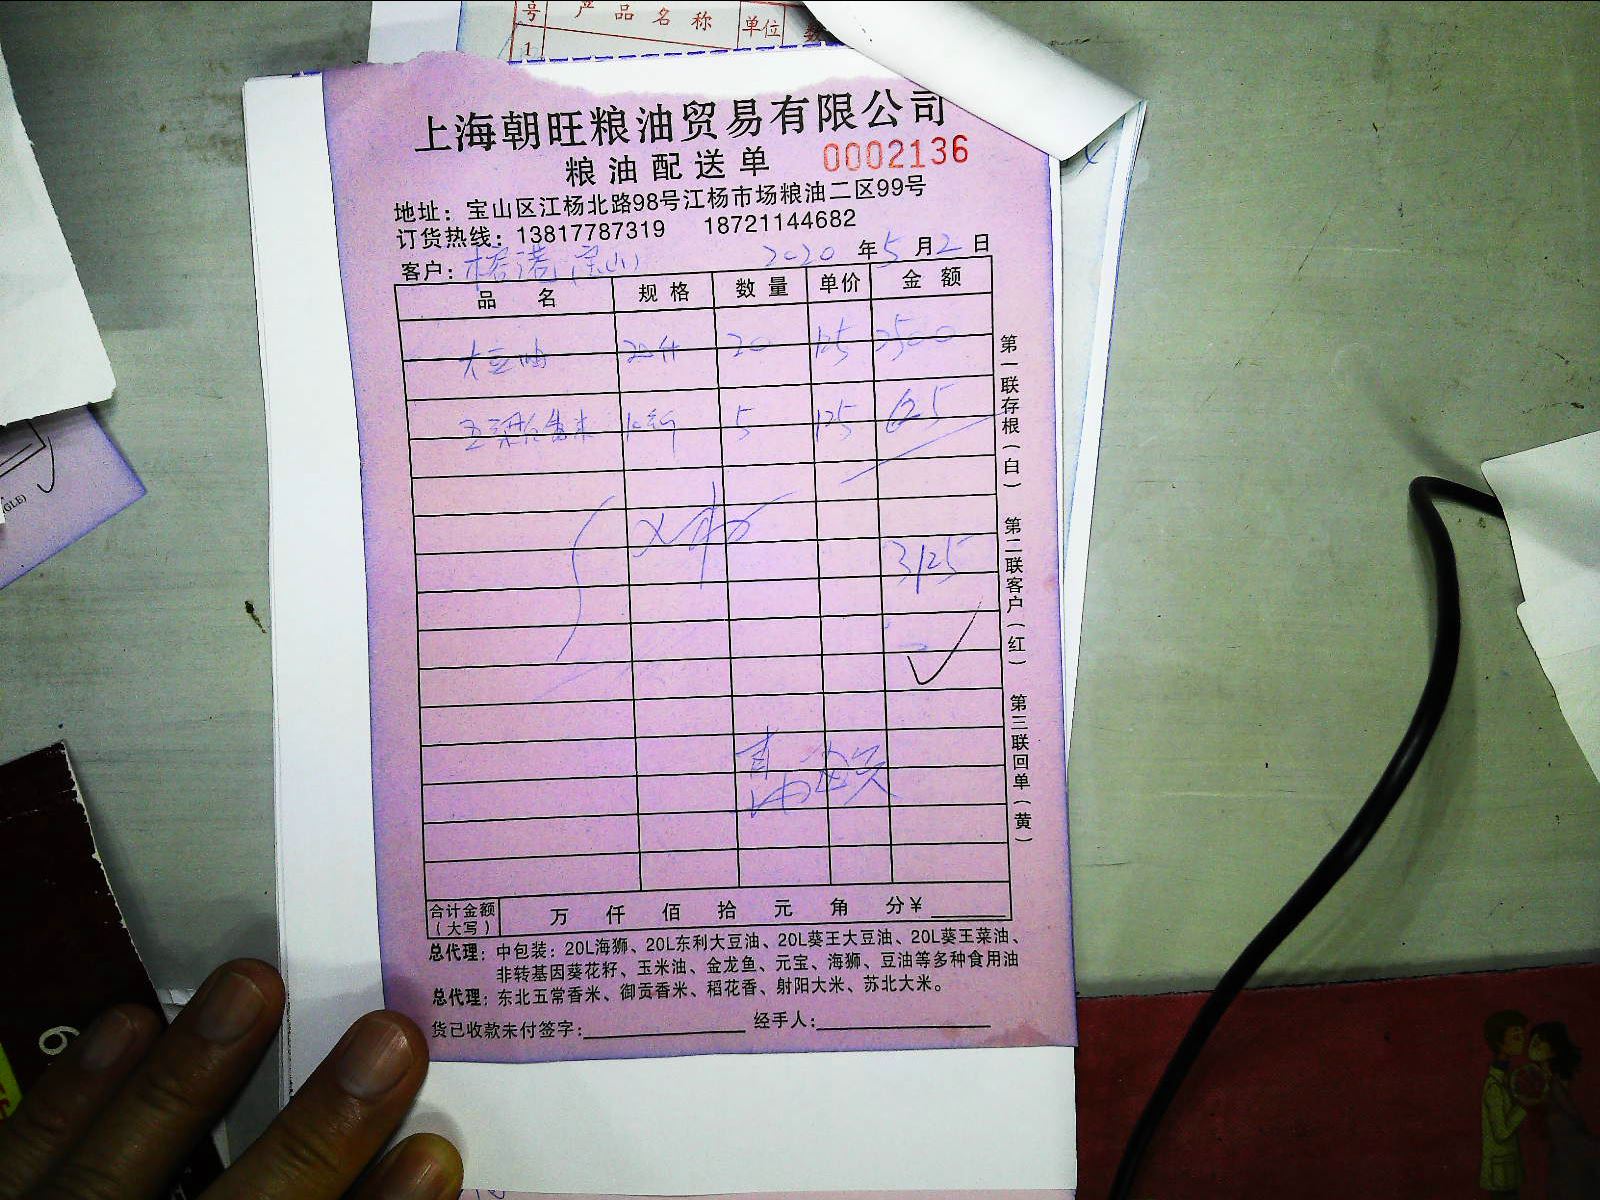 号 产品名称 单位 数
1
上海朝旺粮油贸易有限公司
粮油配送单 0002136
地址：宝山区江杨北路98号江杨市场粮油二区99号
订货热线：13817787319 18721144682
客户： 2020 年 5 月 2 日
品名 规格 数量 单价 金额
大豆油 20升 20 125 2500
5 125 625
3125
第一联存根（白） 第二联客户（红） 第三联回单（黄）
合计金额（大写） 万 仟 佰 拾 元 角 分￥
总代理：中包装：20L海狮、20L东利大豆油、20L葵王大豆油、20L葵王菜油、
非转基因葵花籽、玉米油、金龙鱼、元宝、海狮、豆油等多种食用油
总代理：东北五常香米、御贡香米、稻花香、射阳大米、苏北大米。
货已收款未付签字： 经手人：
GLE)
6